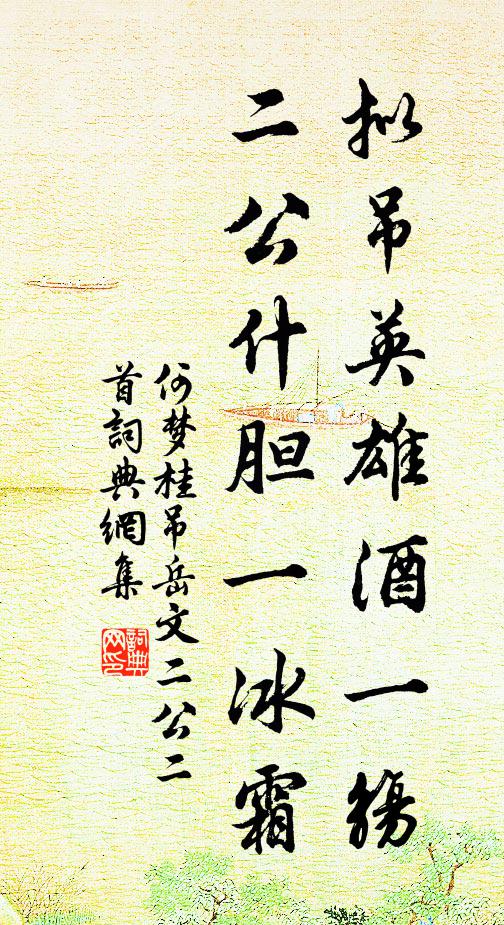 拟吊英雄酒一觴
二公什胆一冰霜
何梦桂吊岳文二公二
首詞典網集
詞典网印